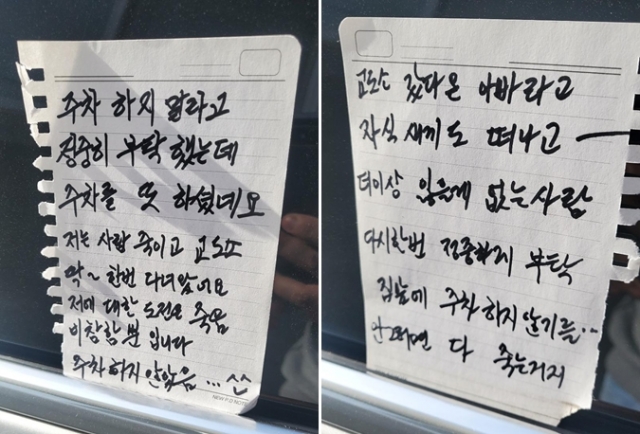 주차 하지 말라고
정중히 부탁 했는데
주차를 또 하셨네요
저는 사람 죽이고 교도소
막~ 한번 다녀왔어요
저에 대한 도전은 죽음
비참함 뿐 입니다
주차 하지 않았음 ... ^^
교도소 갔다온 아빠라고
자식 새끼도 떠나고 —
더이상 잃을게 없는사람
다시한번 정중하게 부탁
집앞에 주차하지 않기를..
안그러면 다 죽는거지